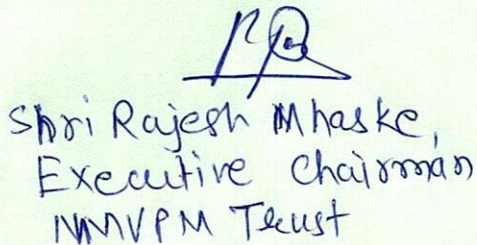 Shri Rajesh Mhaske,
Executive Chairman
NMVPM Trust